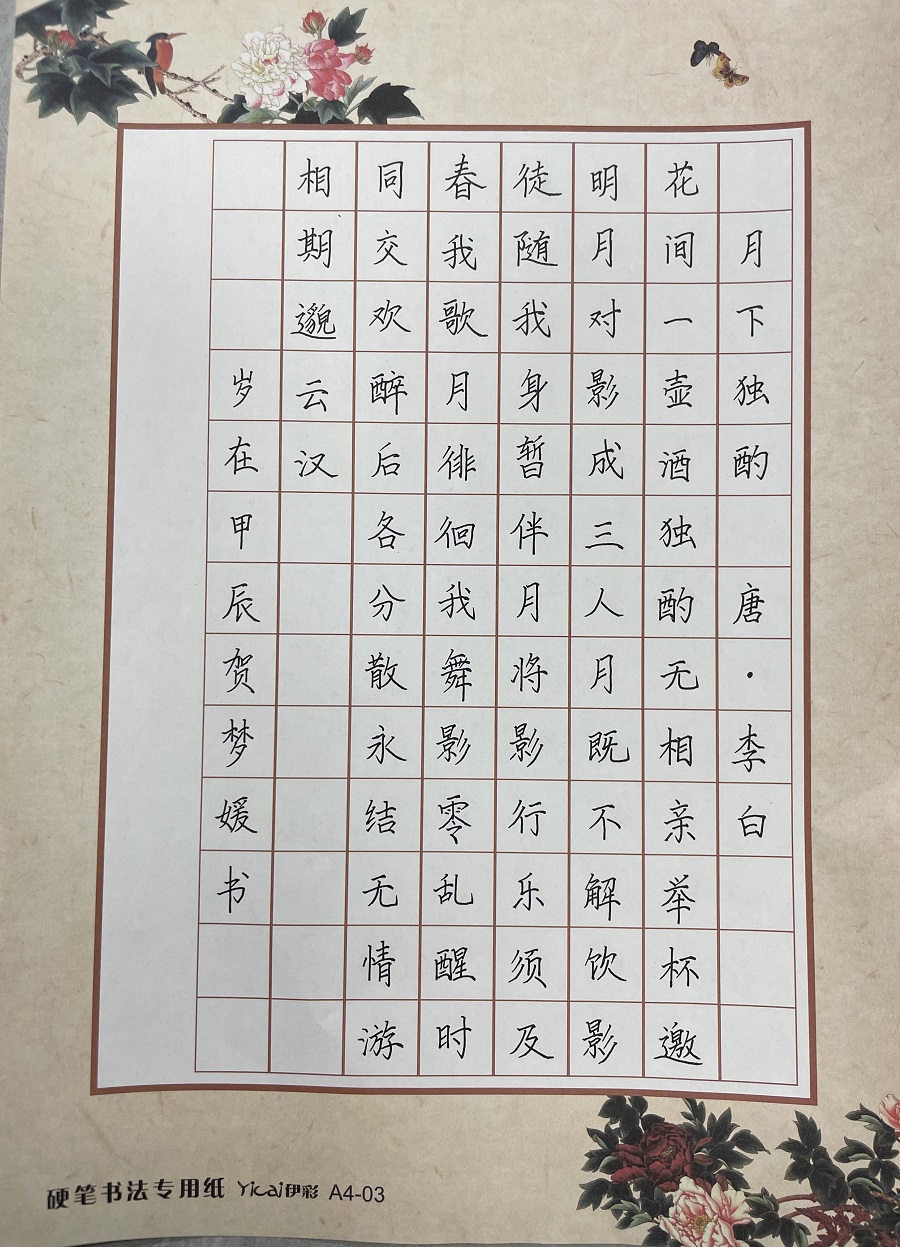 月下独酌 唐·李白
花间一壶酒独酌无相亲举杯邀
明月对影成三人月既不解饮影
徒随我身暂伴月将影行乐须及
春我歌月徘徊我舞影零乱醒时
同交欢醉后各分散永结无情游
相期邈云汉
岁在甲辰贺梦媛书
硬笔书法专用纸 Yicai伊彩 A4-03